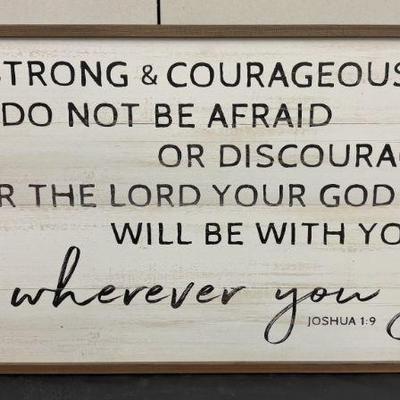 STRONG & COURAGEOUS
DO NOT BE AFRAID
OR DISCOURAG
R THE LORD YOUR GOD
WILL BE WITH YO
wherever you g
JOSHUA 1:9